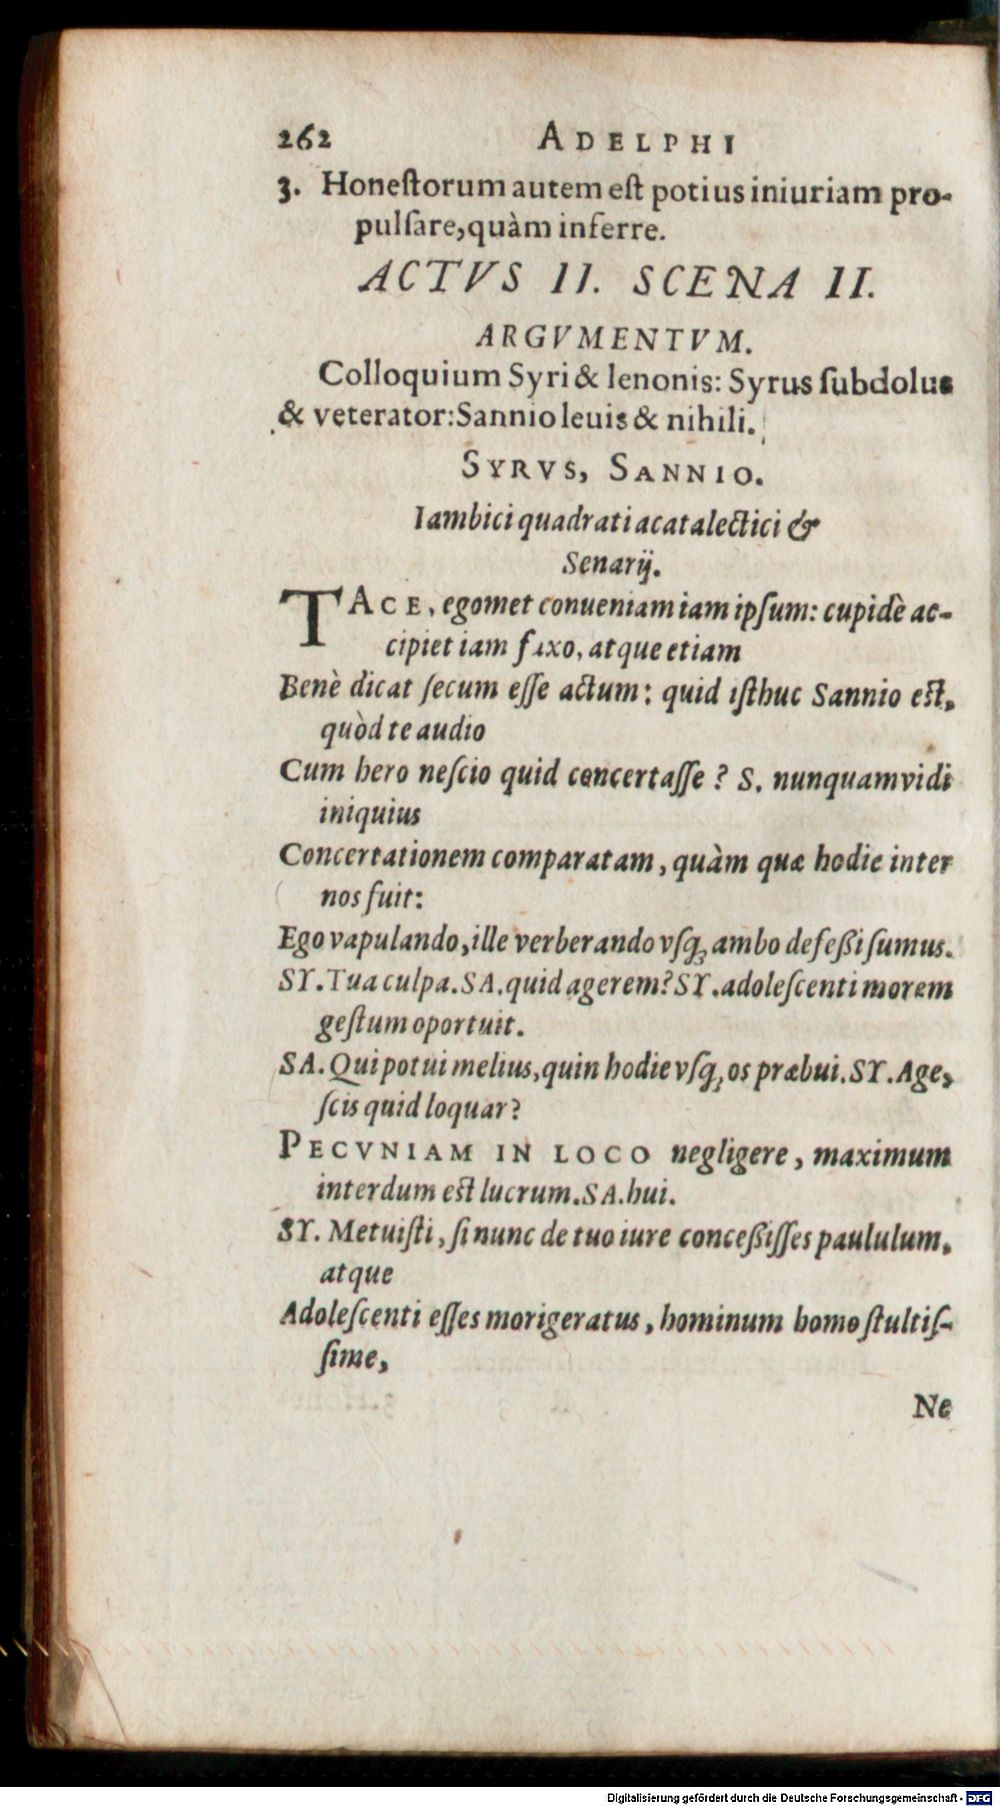 262 ADELPHI
3. Honeſtorum autem eſt potius iniuriam pro-
pulſare, quàm inferre.
ACTVS II. SCENA II.
ARGVMENTVM.
Colloquium Syri & lenonis: Syrus ſubdolus
& veterator: Sannio leuis & nihili.
SYRVS, SANNIO.
Iambici quadrati acatalectici &
Senarij.
TACE, egomet conueniam iam ipſum: cupidè ac-
cipiet iam faxo, atque etiam
Benè dicat ſecum eſſe actum: quid iſthuc Sannio eſt,
quòd te audio
Cum hero neſcio quid concertaſſe? S. nunquam vidi
iniquius
Concertationem comparatam, quàm quæ hodie inter
nos fuit:
Ego vapulando, ille verberando vſq; ambo defeßi ſumus.
SY. Tua culpa. SA. quid agerem? SY. adoleſcenti morem
geſtum oportuit.
SA. Qui potui melius, quin hodie vſq; os præbui. SY. Age,
ſcis quid loquar?
PECVNIAM IN LOCO negligere, maximum
interdum eſt lucrum. SA. hui.
SY. Metuiſti, ſi nunc de tuo iure conceßiſſes paululum,
atque
Adoleſcenti eſſes morigeratus, hominum homo ſtultiſ-
ſime,
Ne
Digitalisierung gefördert durch die Deutsche Forschungsgemeinschaft - DFG